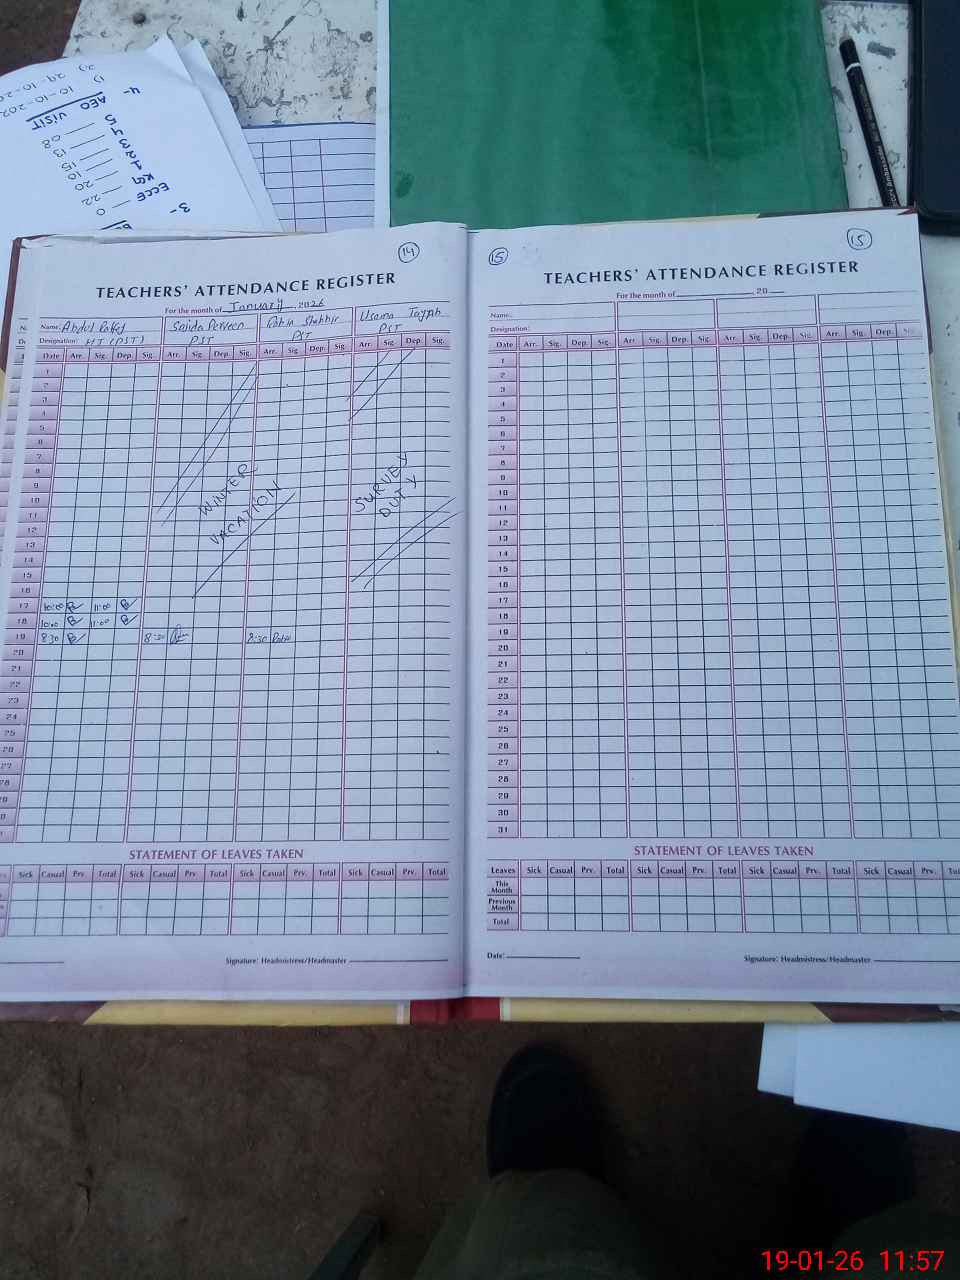 2) 29-10-20
1) 10-10-202
AEO VISIT
4-
5
4
3
2
1
KG
ECCE
08
13
15
10
20
22
0
3-
14
TEACHERS' ATTENDANCE REGISTER
For the month of January 2026
Name: Abdul Saida Perveen Rabia Shabbir Usama Tayyab
Designation: HT (PST) PST PST PST
Date Arr. Sig. Dep. Sig. Arr. Sig. Dep. Sig. Arr. Sig. Dep. Sig. Arr. Sig. Dep. Sig.
1
2
3
4
5
6
7
8
9
10
11
12
13
14
15
16
17 10:00 11:00
18 10:00 11:00
19 8:30 8:30 8:30
20
21
22
23
24
25
26
27
28
29
WINTER
VACATION
SURVEY
DUTY
STATEMENT OF LEAVES TAKEN
Sick Casual Prv. Total Sick Casual Prv. Total Sick Casual Prv. Total Sick Casual Prv. Total
Signature: Headmistress/Headmaster
15 15
TEACHERS' ATTENDANCE REGISTER
For the month of 20
Name:
Designation:
Date Arr. Sig. Dep. Sig. Arr. Sig. Dep. Sig. Arr. Sig. Dep. Sig. Arr. Sig. Dep. Sig.
1
2
3
4
5
6
7
8
9
10
11
12
13
14
15
16
17
18
19
20
21
22
23
24
25
26
27
28
29
30
31
STATEMENT OF LEAVES TAKEN
Leaves Sick Casual Prv. Total Sick Casual Prv. Total Sick Casual Prv. Total Sick Casual Prv.
This Month
Previous Month
Total
Date:
Signature: Headmistress/Headmaster
19-01-26 11:57